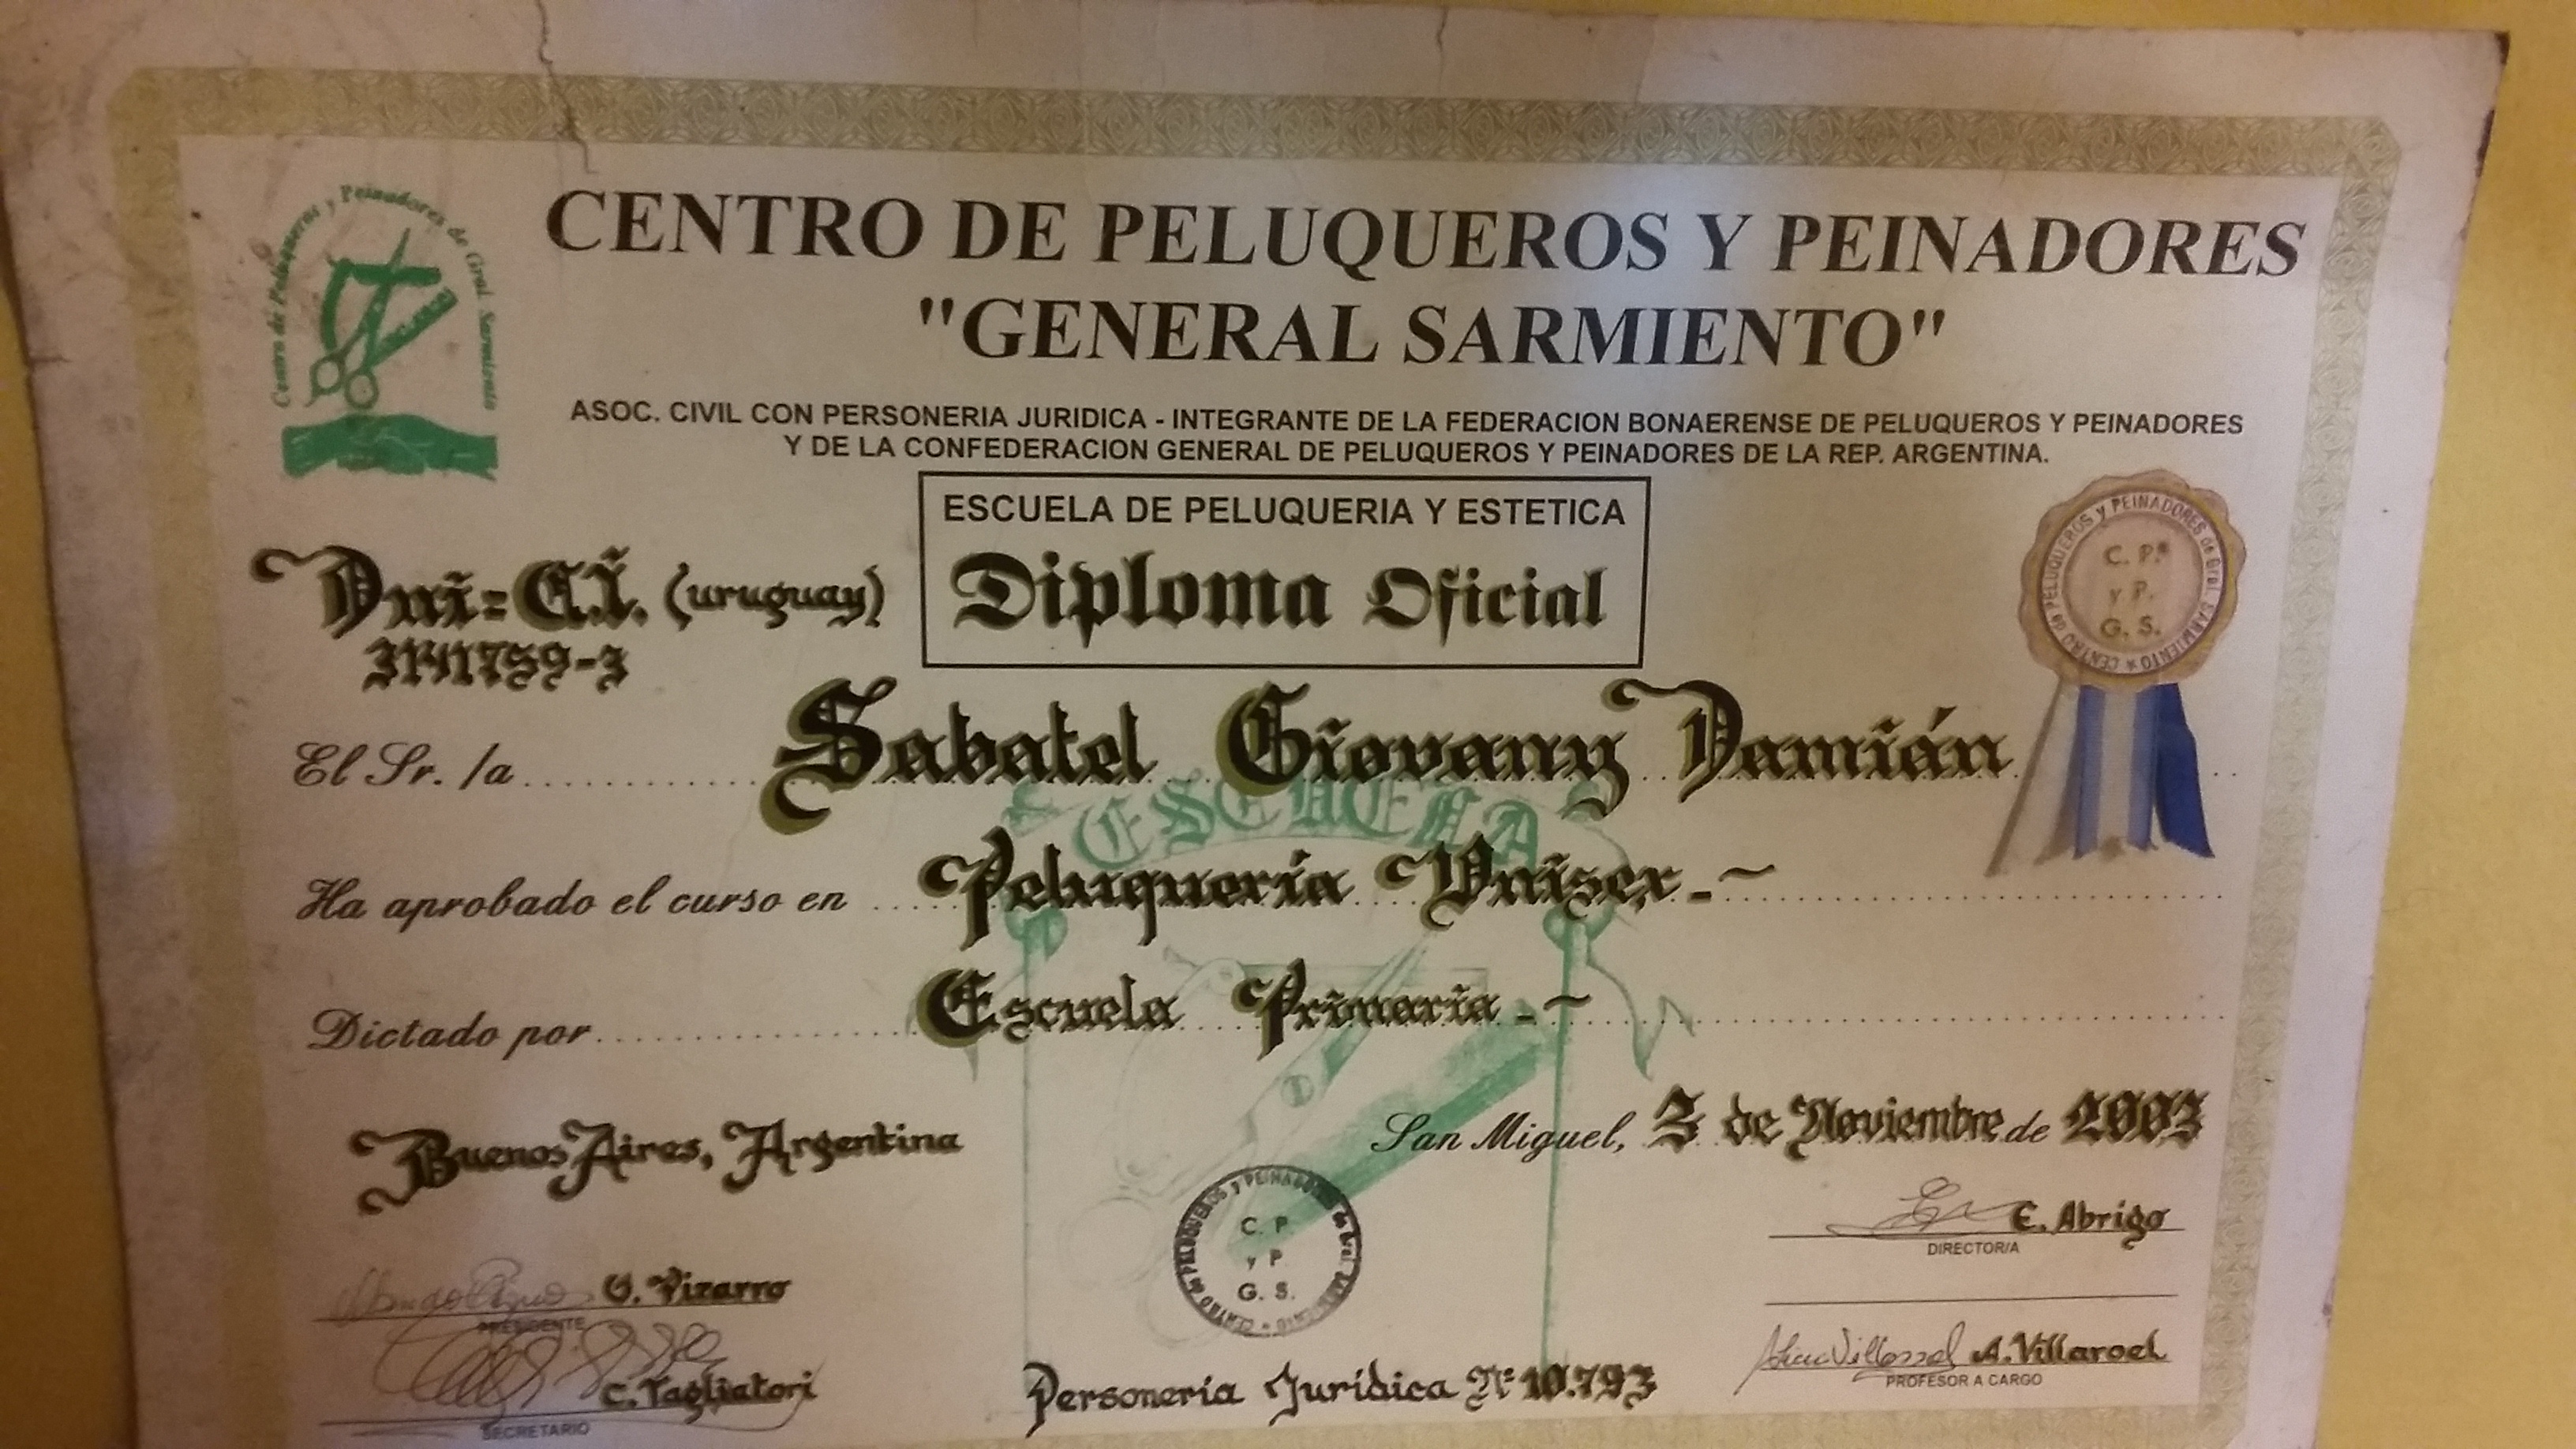 Centro de Peluqueros y Peinadores de Gral. Sarmiento
CENTRO DE PELUQUEROS Y PEINADORES
"GENERAL SARMIENTO"
ASOC. CIVIL CON PERSONERIA JURIDICA - INTEGRANTE DE LA FEDERACION BONAERENSE DE PELUQUEROS Y PEINADORES
Y DE LA CONFEDERACION GENERAL DE PELUQUEROS Y PEINADORES DE LA REP. ARGENTINA.
ESCUELA DE PELUQUERIA Y ESTETICA
Diploma Oficial
Dni=C.I. (uruguay)
CENTRO de PELUQUEROS y PEINADORES de Gral. SARMIENTO
C. Ps
y P.
G. S.
El Sr. /a Sabatel Giovany Damián
ESCUELA
Ha aprobado el curso en Peluquería Unisex.~
Dictado por Escuela Primaria.~
Buenos Aires, Argentina
San Miguel, 3 de Noviembre de 2003
CENTRO de PELUQUEROS y PEINADORES de Gral. SARMIENTO
C. P.
y P
G. S.
E. Abrigo
DIRECTOR/A
G. Pizarro
PRESIDENTE
Alicia Villarroel A. Villaroel
PROFESOR A CARGO
C. Tagliatori
SECRETARIO
Personería Jurídica Nº 10.793